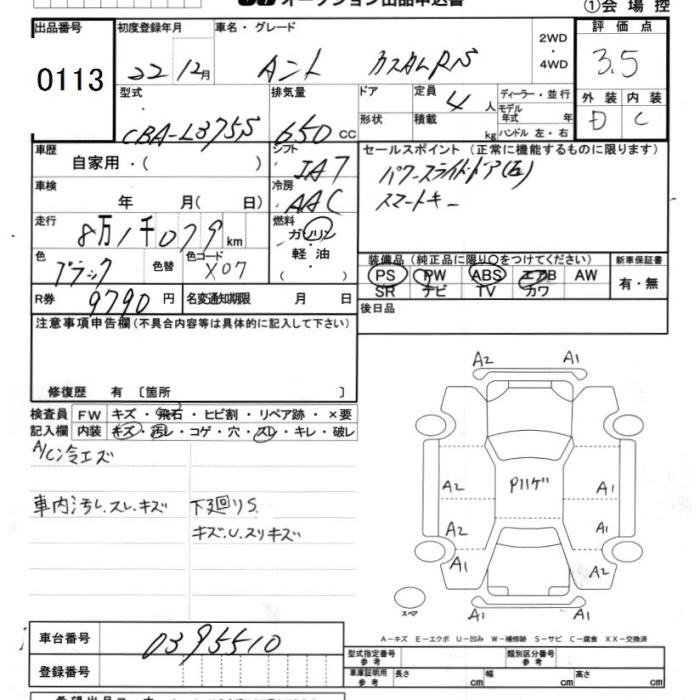 オークション出品申込書 ①会場控
出品番号 初度登録年月 車名・グレード 2WD・4WD 評価点
0113 22/12月 タント カスタムRS 3.5
型式 排気量 ドア 定員 4人 ディーラー・並行 外装 内装
CBA-L375S 650cc 形状 積載 kg モデル年式 年 D C
ハンドル 左・右
車歴 シフト セールスポイント (正常に機能するものに限ります)
自家用・( ) IAT パワースライドドア(右)
車検 冷房 スマートキー
年 月( 日) AAC
走行 燃料
8万1千079km ガソリン・軽油・( )
色 色替 色コード 装備品 (純正品に限り○をつけてください) 新車保証書
ブラック X07 PS PW ABS エアB AW 有・無
SR ナビ TV カワ
R券 9790円 名変通知期限 月 日 後日品
注意事項申告欄(不具合内容等は具体的に記入して下さい)
修復歴 有 〔箇所 〕
検査員 FW キズ・飛石・ヒビ割・リペア跡・×要
記入欄 内装 キズ・汚レ・コゲ・穴・スレ・キレ・破レ
A/C冷エズ
車内汚レ.スレ.キズ 下廻りS.
キズ.U.スリキズ
A2 A1
Pハゲ
A2 A1
A2 A1
A1 A2
スペア A1
A1
A-キズ E-エクボ U-凹み W-補修跡 S-サビ C-腐食 XX-交換済
車台番号 0395510
型式指定番号 参考 類別区分番号 参考
登録番号 車庫証明用 参考 長さ cm 幅 cm 高さ cm
希望出品コーナー